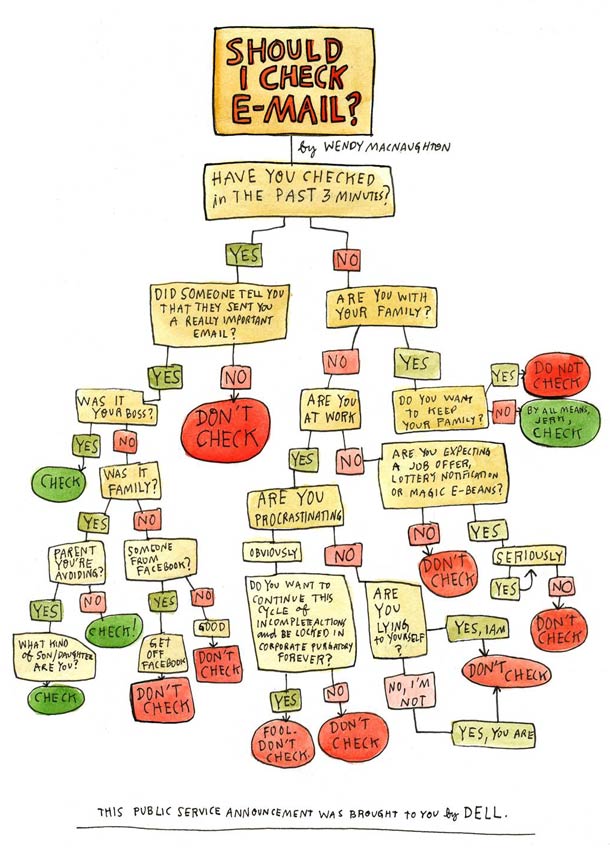 SHOULD
I CHECK
E-MAIL?
by WENDY MACNAUGHTON
HAVE YOU CHECKED
in THE PAST 3 MINUTES?
YES
NO
DID SOMEONE TELL YOU
THAT THEY SENT YOU
A REALLY IMPORTANT
EMAIL?
ARE YOU WITH
YOUR FAMILY?
YES
NO
NO
YES
WAS IT
YOUR BOSS?
DON'T
CHECK
ARE YOU
AT WORK
DO YOU WANT
TO KEEP
YOUR FAMILY?
YES
DO NOT
CHECK
NO
BY ALL MEANS,
JERK,
CHECK
YES
NO
CHECK
WAS IT
FAMILY?
YES
NO
ARE YOU EXPECTING
A JOB OFFER,
LOTTERY NOTIFICATION
OR MAGIC E-BEANS?
ARE YOU
PROCRASTINATING
YES
NO
NO
YES
PARENT
YOU'RE
AVOIDING?
SOMEONE
FROM
FACEBOOK?
OBVIOUSLY
NO
DON'T
CHECK
SERIOUSLY
YES
NO
DON'T
CHECK
YES
NO
CHECK!
YES
NO
GOOD
DON'T
CHECK
WHAT KIND
of SON/DAUGHTER
ARE YOU?
CHECK
GET
OFF
FACEBOOK
DON'T
CHECK
DO YOU WANT TO
CONTINUE THIS
CYCLE of
INCOMPLETE ACTIONS
AND BE LOCKED IN
CORPORATE PURGATORY
FOREVER?
ARE
YOU
LYING
to YOURSELF
?
YES, I AM
DON'T CHECK
YES
NO
NO, I'M
NOT
YES, YOU ARE
FOOL.
DON'T
CHECK.
DON'T
CHECK
THIS PUBLIC SERVICE ANNOUNCEMENT WAS BROUGHT TO YOU by DELL.